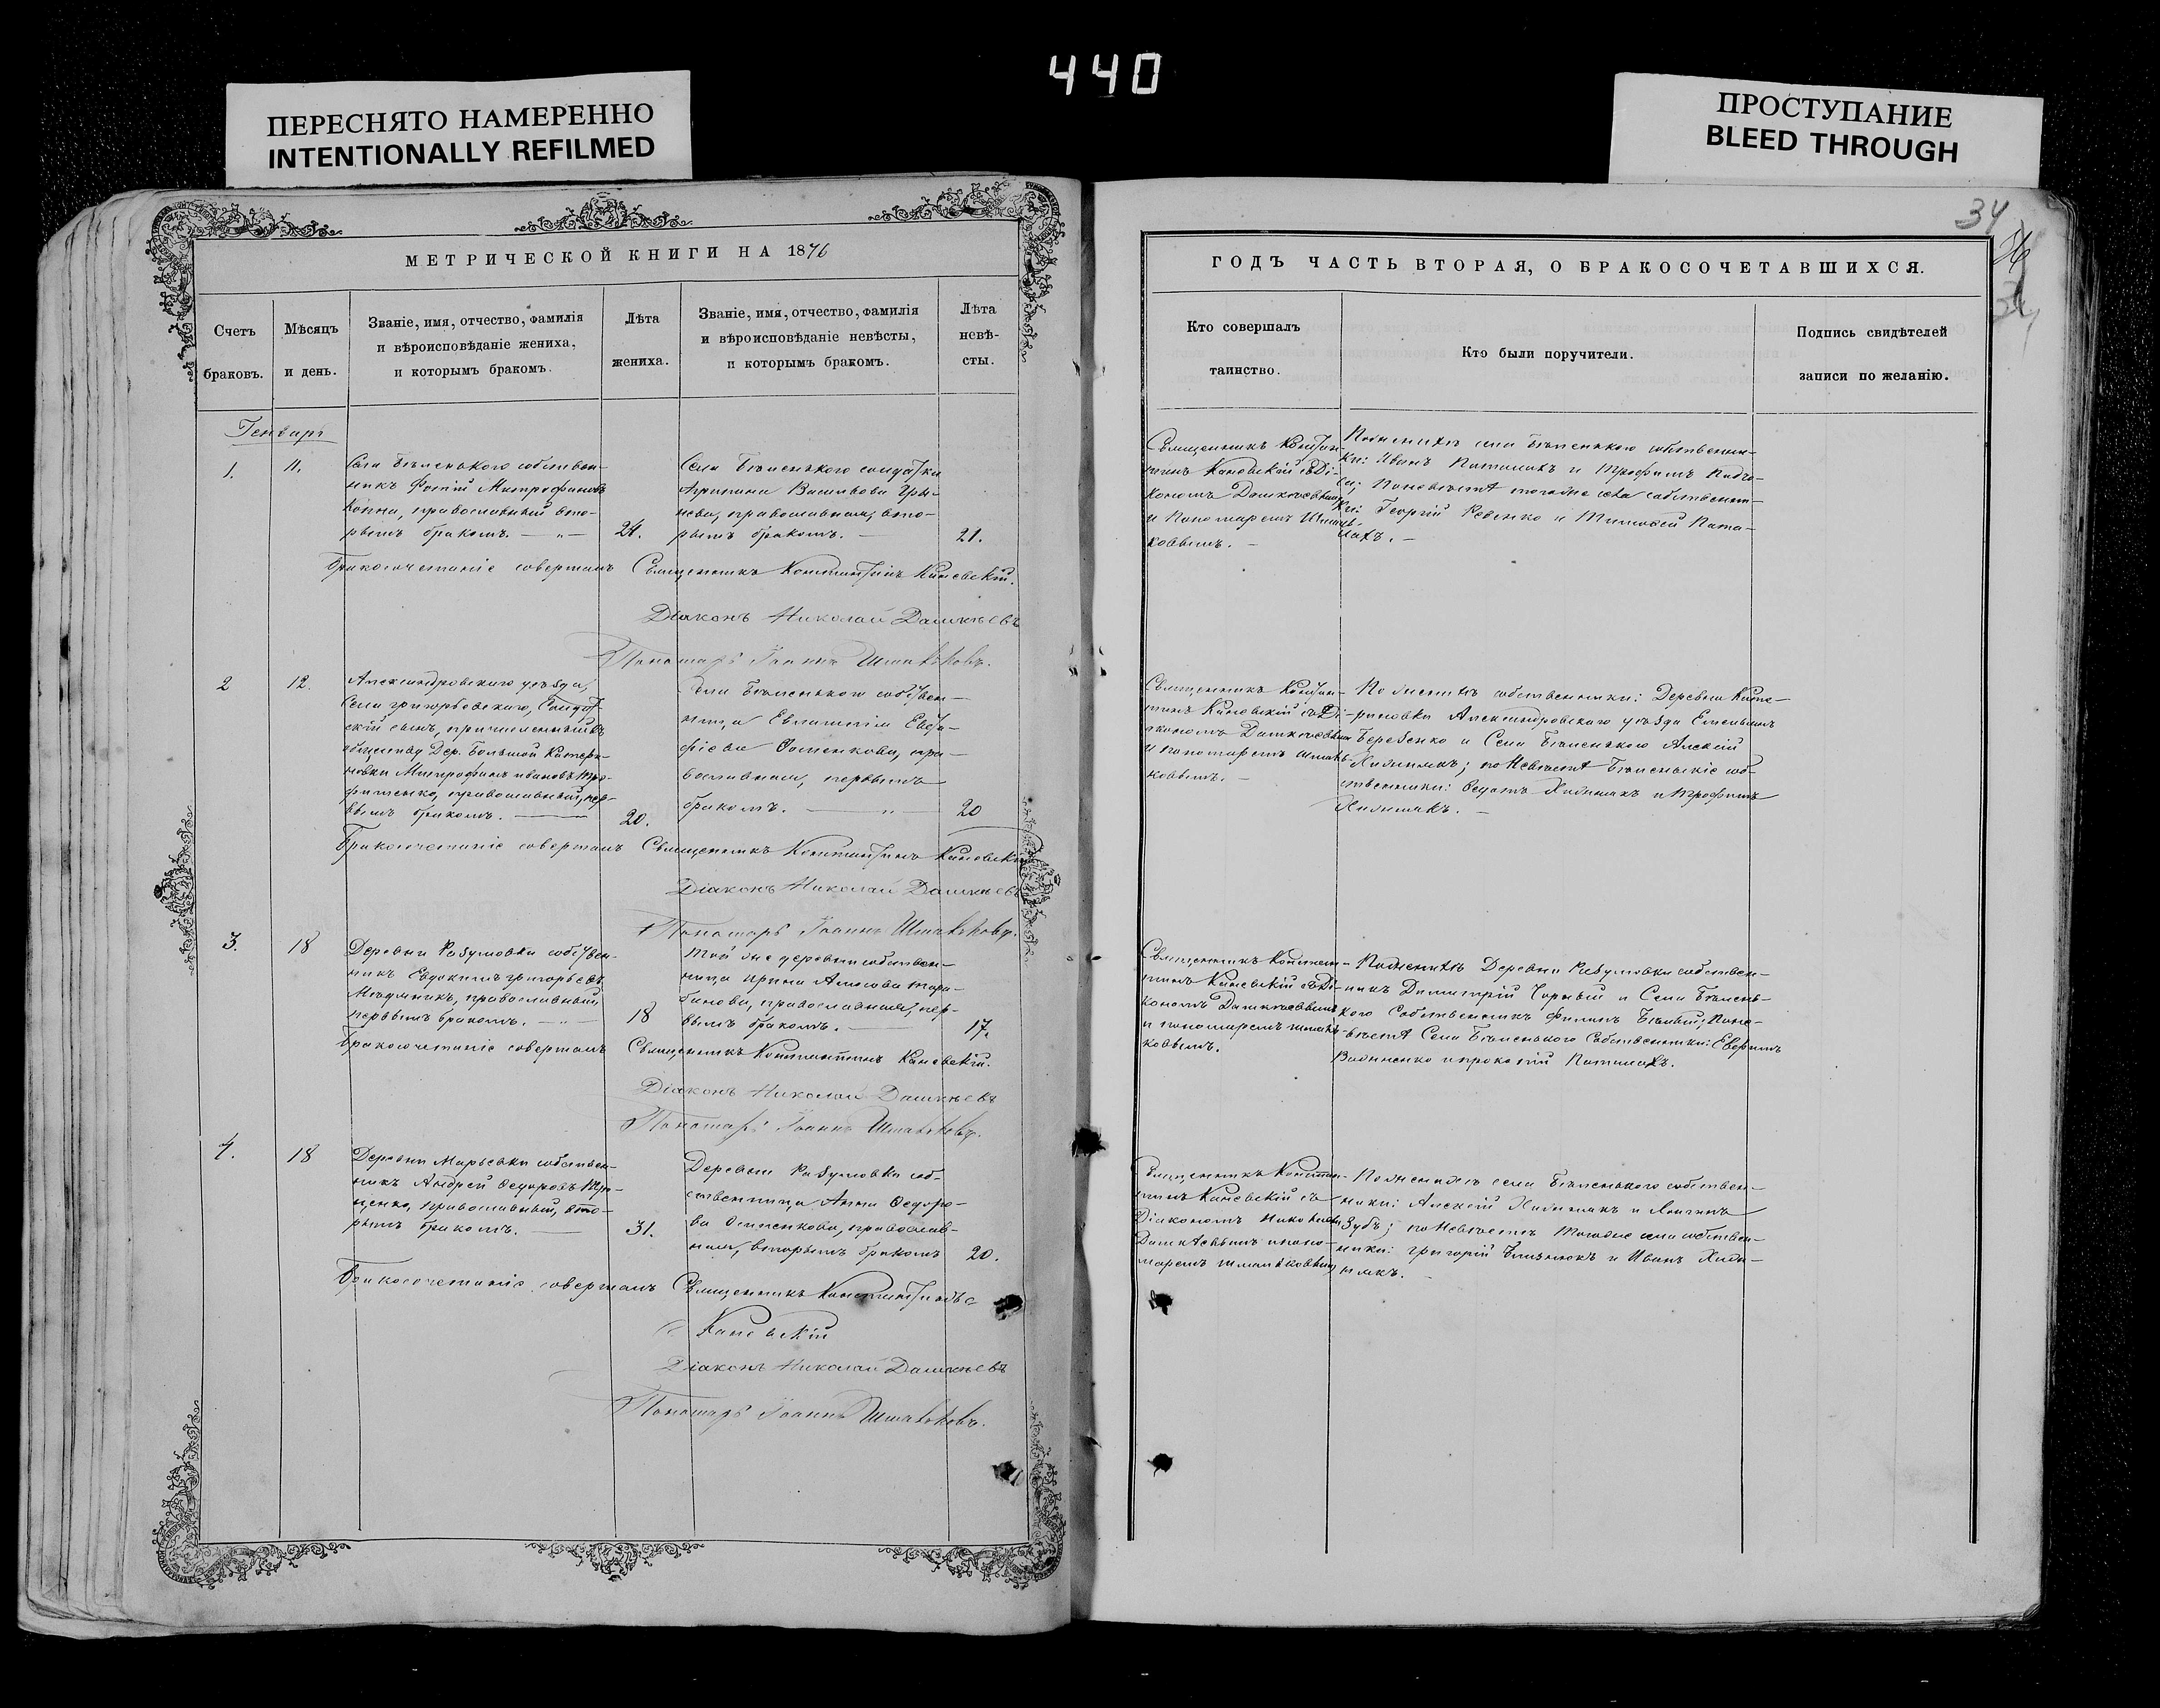 440
ПЕРЕСНЯТО НАМЕРЕННО
INTENTIONALLY REFILMED
ПРОСТУПАНИЕ
BLEED THROUGH
МЕТРИЧЕСКОЙ КНИГИ НА 1876
Счетъ браковъ.
Мѣсяцъ и день.
Званіе, имя, отчество, фамилія
и вѣроисповѣданіе жениха,
и которымъ бракомъ.
Лѣта жениха.
Званіе, имя, отчество, фамилія
и вѣроисповѣданіе невѣсты,
и которымъ бракомъ.
Лѣта невѣ-
сты.
Генварь
1.
11.
Села Бѣленькаго собствен-
никъ Фотій Митрофановъ
православный вто-
рымъ бракомъ.
24.
Села Бѣленькаго солдатка
Агрипина Васильева
православная, вто-
рымъ бракомъ.
21.
Бракосочетаніе совершалъ Священникъ Константинъ Каневскій.
Діаконъ Николай Дашкѣевъ
Пономарь Іоаннъ
2
12.
Александровскаго уѣзда,
Села Григорьевскаго, Солдат-
скій сынъ, причисленный въ
общество Дер. Большой Катери-
новки Митрофанъ Ивановъ Тро-
фименко, православный, пер-
вымъ бракомъ.
20.
Села Бѣленькаго собствен-
ница Евлампія Евфи-
православная, первымъ
бракомъ.
20
Бракосочетаніе совершалъ Священникъ Константинъ Каневскій
Діаконъ Николай Дашкѣевъ
Пономарь Іоаннъ
3.
18
Деревни Разумовки собствен-
никъ Евдокимъ Григорьевъ
православный,
первымъ бракомъ.
18
Той же деревни собствен-
ница Ирина
православная, пер-
вымъ бракомъ.
17.
Бракосочетаніе совершалъ Священникъ Константинъ Каневскій.
Діаконъ Николай Дашкѣевъ
Пономарь Іоаннъ
4.
18
Деревни Марьевки собствен-
никъ Андрей Ѳедоровъ
православный, вто-
рымъ бракомъ.
31.
Деревни Разумовки соб-
ственница Анна Ѳедоро-
ва православ-
ная, вторымъ бракомъ
20.
Бракосочетаніе совершалъ Священникъ Константинъ
Каневскій
Діаконъ Николай Дашкѣевъ
Пономарь Іоаннъ
34
ГОДЪ ЧАСТЬ ВТОРАЯ, О БРАКОСОЧЕТАВШИХСЯ.
Кто совершалъ
таинство.
Кто были поручители.
Подпись свидѣтелей
записи по желанію.
Священникъ Констан-
тинъ Каневскій съ Ді-
кономъ Дашкѣевымъ
и Пономаремъ
По женихѣ села Бѣленькаго собственни-
ки: Иванъ и Трофимъ
по невѣстѣ того же села собственни-
ки: Георгій и Тимофей
Священникъ Констан-
тинъ Каневскій съ Ді-
акономъ Дашкѣевымъ
и пономаремъ
По женихѣ собственники: Деревни Кате-
риновки Александровскаго уѣзда Емельянъ
Березенко и Села Бѣленькаго Алексій
Хижнякъ; по Невѣстѣ Бѣленьскіе соб-
ственники: Ѳедотъ Хижнякъ и Трофимъ
Хижнякъ.
Священникъ Констан-
тинъ Каневскій съ Ді-
кономъ Дашкѣевымъ
и пономаремъ
По женихѣ Деревни Разумовки собствен-
никъ Димитрій Чорный и Села Бѣлень-
каго Собственникъ Филипъ Бѣлый; по не-
вѣстѣ Села Бѣленькаго Собственники: Евфимъ
и Прокопій
Священникъ Констан-
тинъ Каневскій съ
Діакономъ Николаемъ
Дашкѣевымъ и поно-
маремъ
По женихѣ села Бѣленькаго собствен-
ники: Алексій Хижнякъ и Логинъ
Зубъ; по Невѣстѣ того же села собствен-
ники: Григорій Близнюкъ и Иванъ Хиж-
някъ.